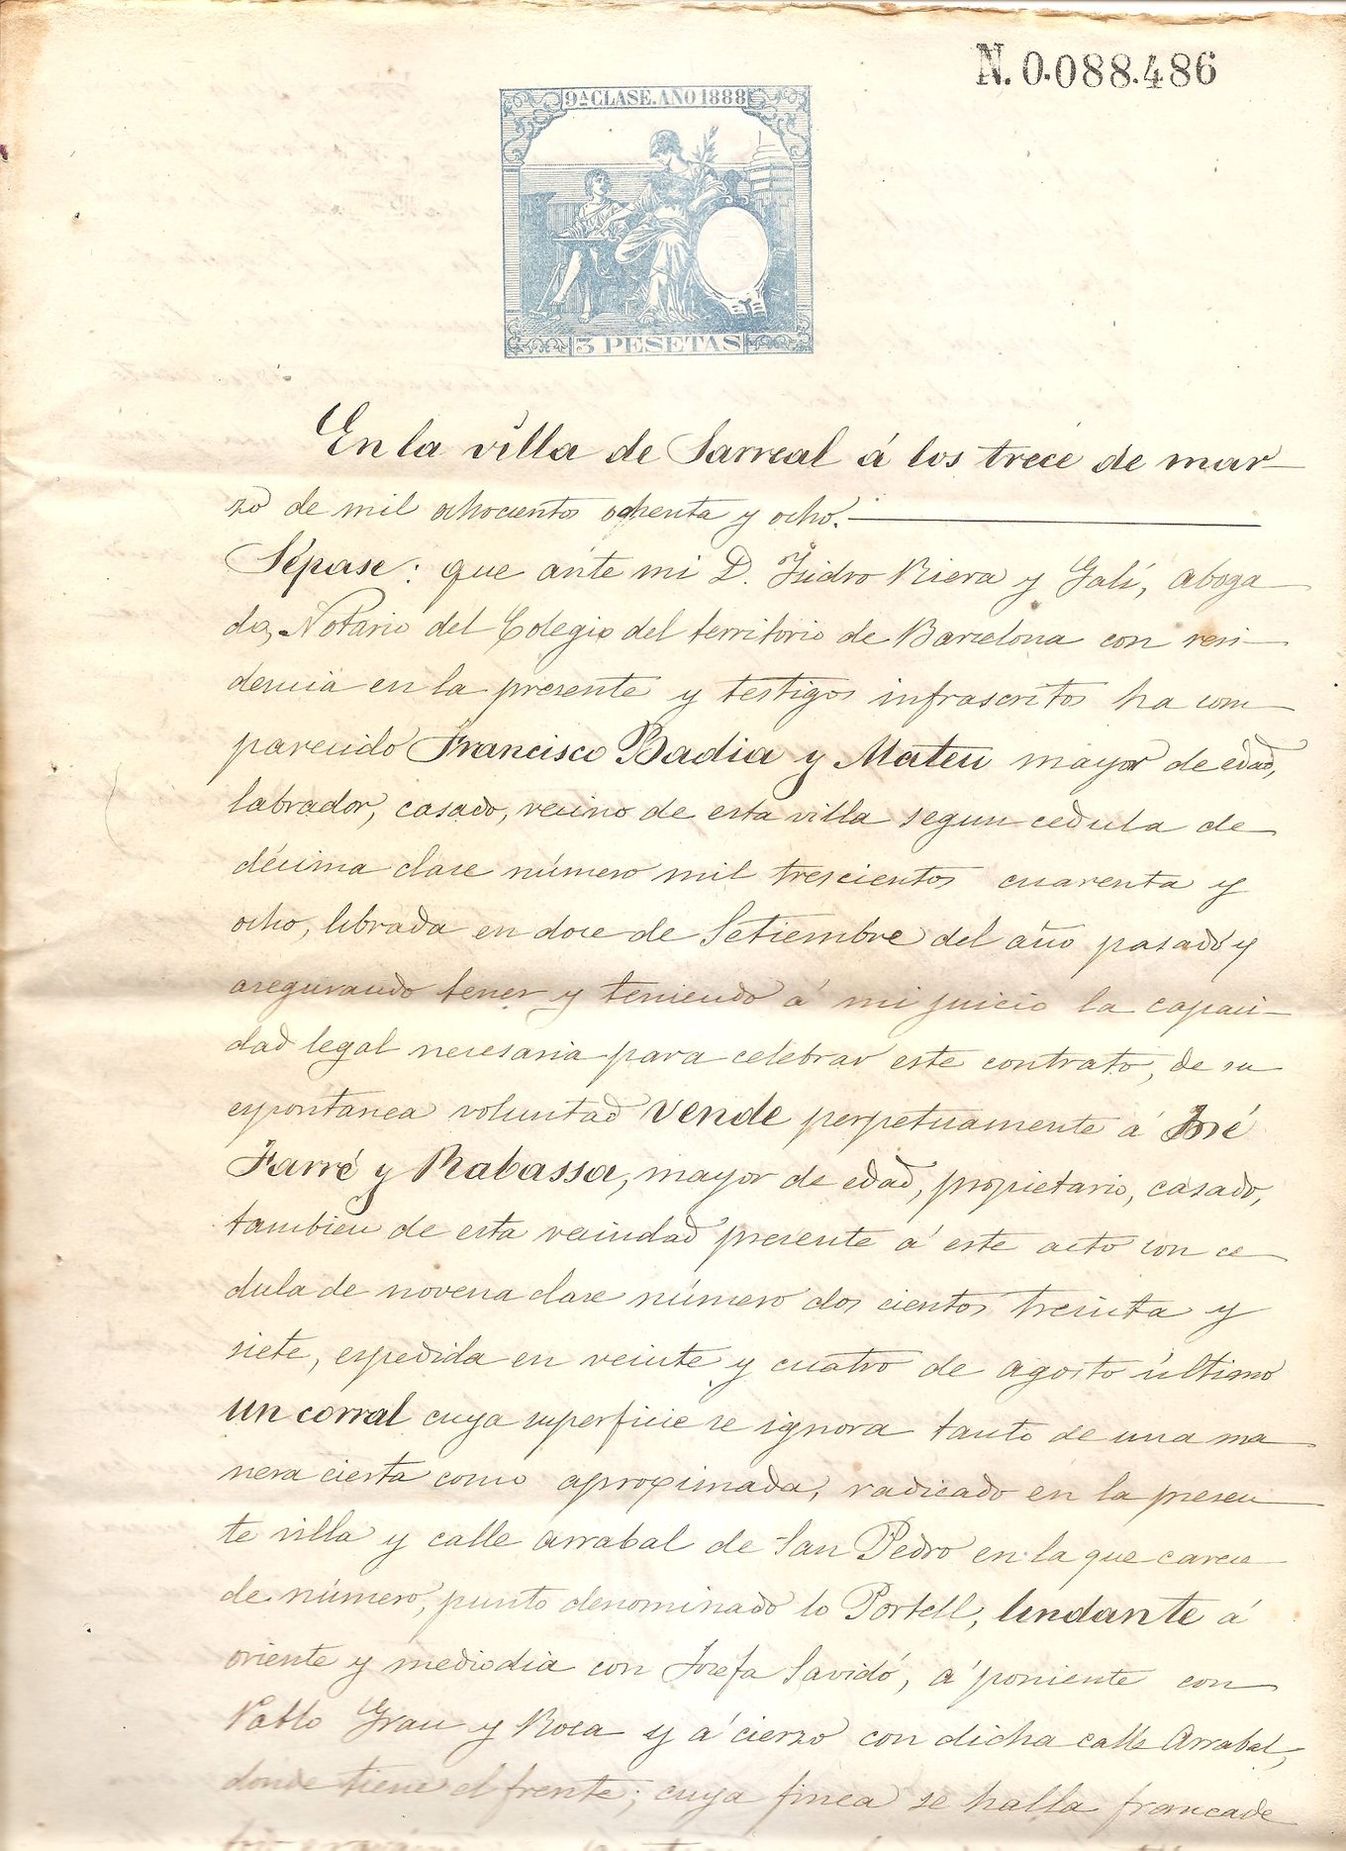 N. 0.088.486
9ª CLASE. AÑO 1888
3 PESETAS
En la villa de Sarreal á los trece de mar-
zo de mil ochocientos ochenta y ocho.
Sépase: que ante mi D. Isidro Riera y Galí, aboga
do, Notario del Colegio del territorio de Barcelona con resi-
dencia en la presente y testigos infrascritos ha com
parecido Francisco Badia y Mateu mayor de edad,
labrador, casado, vecino de esta villa segun cedula de
décima clase número mil trescientos cuarenta y
ocho, librada en doce de Setiembre del año pasado y
asegurando tener y teniendo á mi juicio la capaci-
dad legal necesaria para celebrar este contrato, de su
espontanea voluntad vende perpetuamente á José
Farré y Rabassa, mayor de edad, propietario, casado,
tambien de esta vecindad presente á este acto con ce
dula de novena clase número dos cientos treinta y
siete, espedida en veinte y cuatro de agosto último
un corral cuya superficie se ignora tanto de una ma
nera cierta como aproximada, radicado en la presen
te villa y calle arrabal de San Pedro en la que carece
de número, punto denominado lo Portell, lindante á
oriente y mediodia con Josefa Savidó, á poniente con
Pablo Grau y Roca y á cierzo con dicha calle Arrabal,
donde tiene el frente; cuya finca se halla franca de